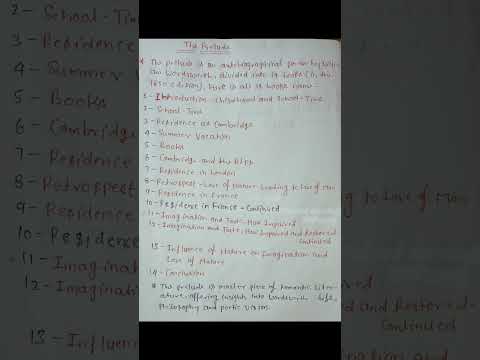 The Prelude
* The prelude is an autobiographical poem by Willi-
am Wordsworth, divided into 14 books (in the
1850 edition), here is all 14 books name
1 - Introduction - Childhood and School-Time
2 - School-Time
3 - Residence at Cambridge
4 - Summer Vacation
5 - Books
6 - Cambridge and the Alps
7 - Residence in London
8 - Retrospect - Love of Nature Leading to Love of Man
9 - Residence in France
10 - Residence in France - Continued
11 - Imagination and Taste - How Impaired
12 - Imagination and Taste - How Impaired and Restored -
Continued
13 - Influence of Nature on Imagination and
Love of Nature
14 - Conclusion
* The prelude is master piece of Romantic Liter-
ature, offering insights into Wordsworth life,
philosophy and poetic vision.
2 - School-Time
3 - Residence
4 - Summer
5 - Books
6 - Cambridge
7 - Residence
8 - Retrospect
9 - Residence
10 = Residence
11 - Imagina
12 - Imagina
13 - Influ
to Love of Man
and Restored -
Continued